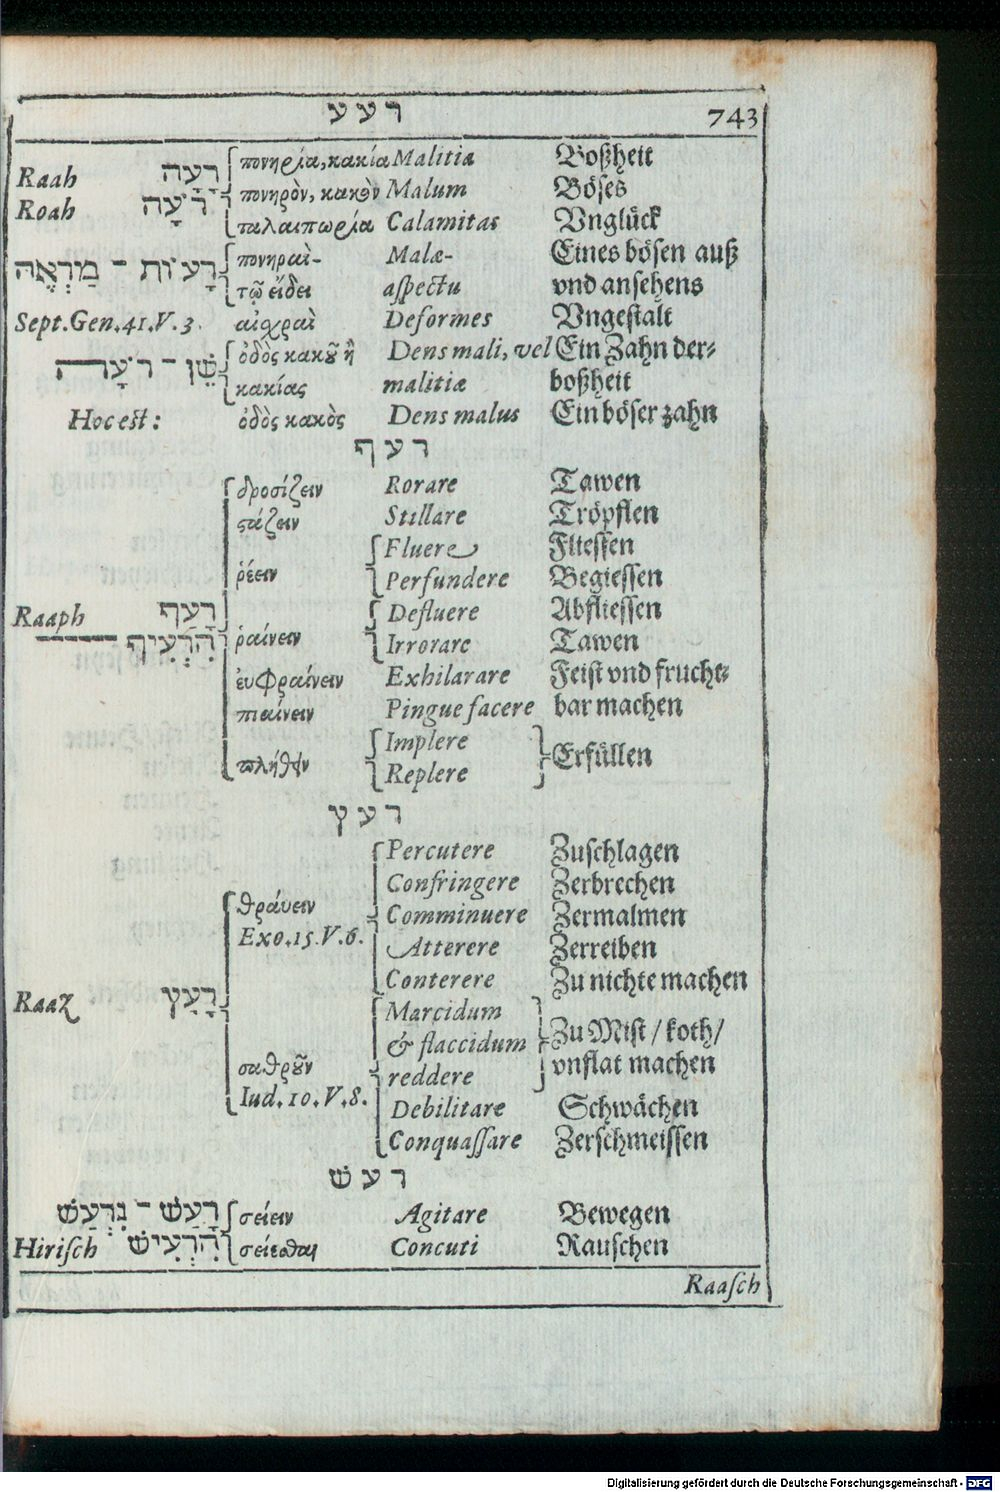 רעע 743
Raah רָעָה πονηρία, κακία Malitia Boßheit
Roah רֹעָה πονηρὸν, κακὸν Malum Böses
ταλαιπωρία Calamitas Vnglück
רָעוֹת־מַרְאֶה πονηραὶ- Malæ- Eines bösen auß
τῷ εἴδει aspectu vnd ansehens
Sept. Gen. 41. V. 3. αἰχραὶ Deformes Vngestalt
שֵׁן־רֹעָה ὀδὸς κακοῦ ἢ Dens mali, vel Ein Zahn der-
κακίας malitiæ boßheit
Hoc est: ὀδὸς κακὸς Dens malus Ein böser zahn
רעף
δροσίζειν Rorare Tawen
στάζειν Stillare Tröpflen
Fluere Fliessen
ῥέειν Perfundere Begiessen
Raaph רָעַף Defluere Abfliessen
הִרְעִיף ῥαίνειν Irrorare Tawen
ἐυφραίνειν Exhilarare Feist vnd frucht-
πιαίνειν Pingue facere bar machen
Implere
πλήθειν Erfüllen
Replere
רעץ
Percutere Zuschlagen
Confringere Zerbrechen
θράυειν Comminuere Zermalmen
Exo. 15. V. 6. Atterere Zerreiben
Conterere Zu nichte machen
Raaz רָעַץ Marcidum
& flaccidum Zu Mist / koth /
σαθροῦν reddere vnflat machen
Iud. 10. V. 8. Debilitare Schwächen
Conquassare Zerschmeissen
רעש
רָעַשׁ־נִרְעַשׁ σείειν Agitare Bewegen
Hirisch הִרְעִישׁ σείεσθαι Concuti Rauschen
Raasch
Digitalisierung gefördert durch die Deutsche Forschungsgemeinschaft - DFG